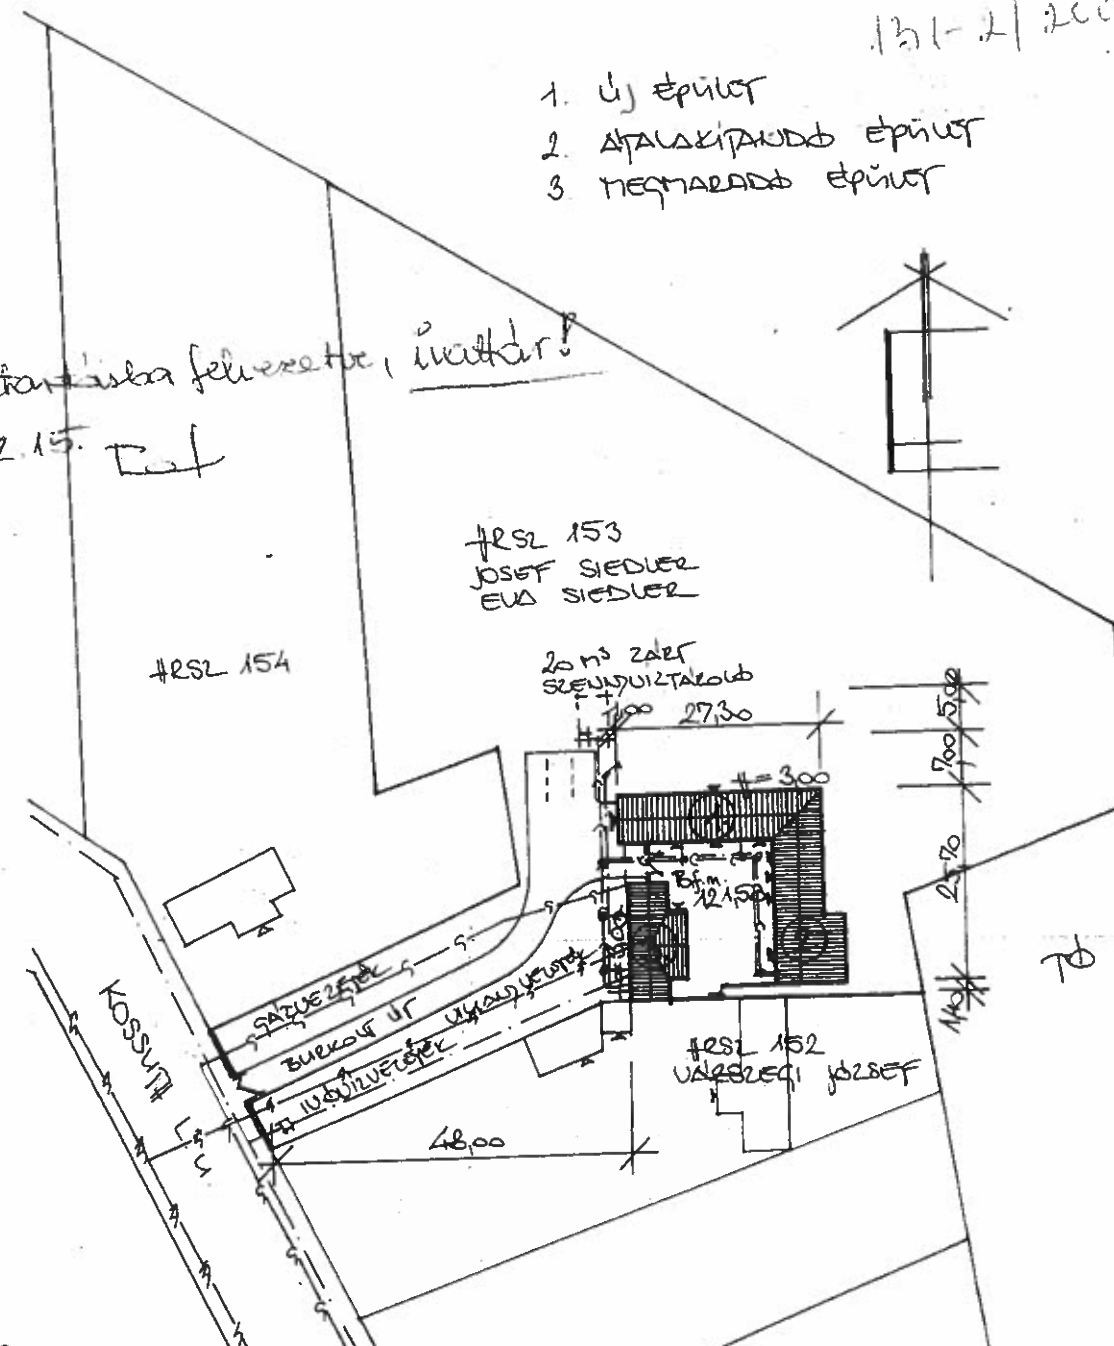 1. ÚJ ÉPÜLET
2. ÁTALAKÍTANDÓ ÉPÜLET
3 MEGMARADÓ ÉPÜLET
irattár!
2.15.
HRSZ 153
JOSEF SIEDLER
EVA SIEDLER
HRSZ 154
20 m³ ZÁRT
SZENNYVÍZTÁROLÓ
27,30
5,00
7,00
H = 3,00
25,70
B.f.m.
121,50
GÁZVEZETÉK
BURKOLT ÚT
VILLANYVEZETÉK
IVÓVÍZVEZETÉK
KOSSUTH L. U.
HRSZ 152
VÁRSZEGI JÓZSEF
48,00
1,40
TÓ